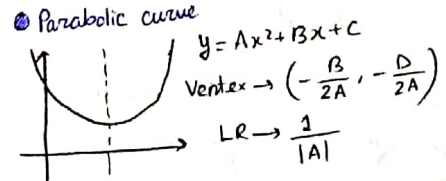 Parabolic curve
y = Ax² + Bx + C
Vertex → (-B/2A, -D/2A)
LR → 1/|A|